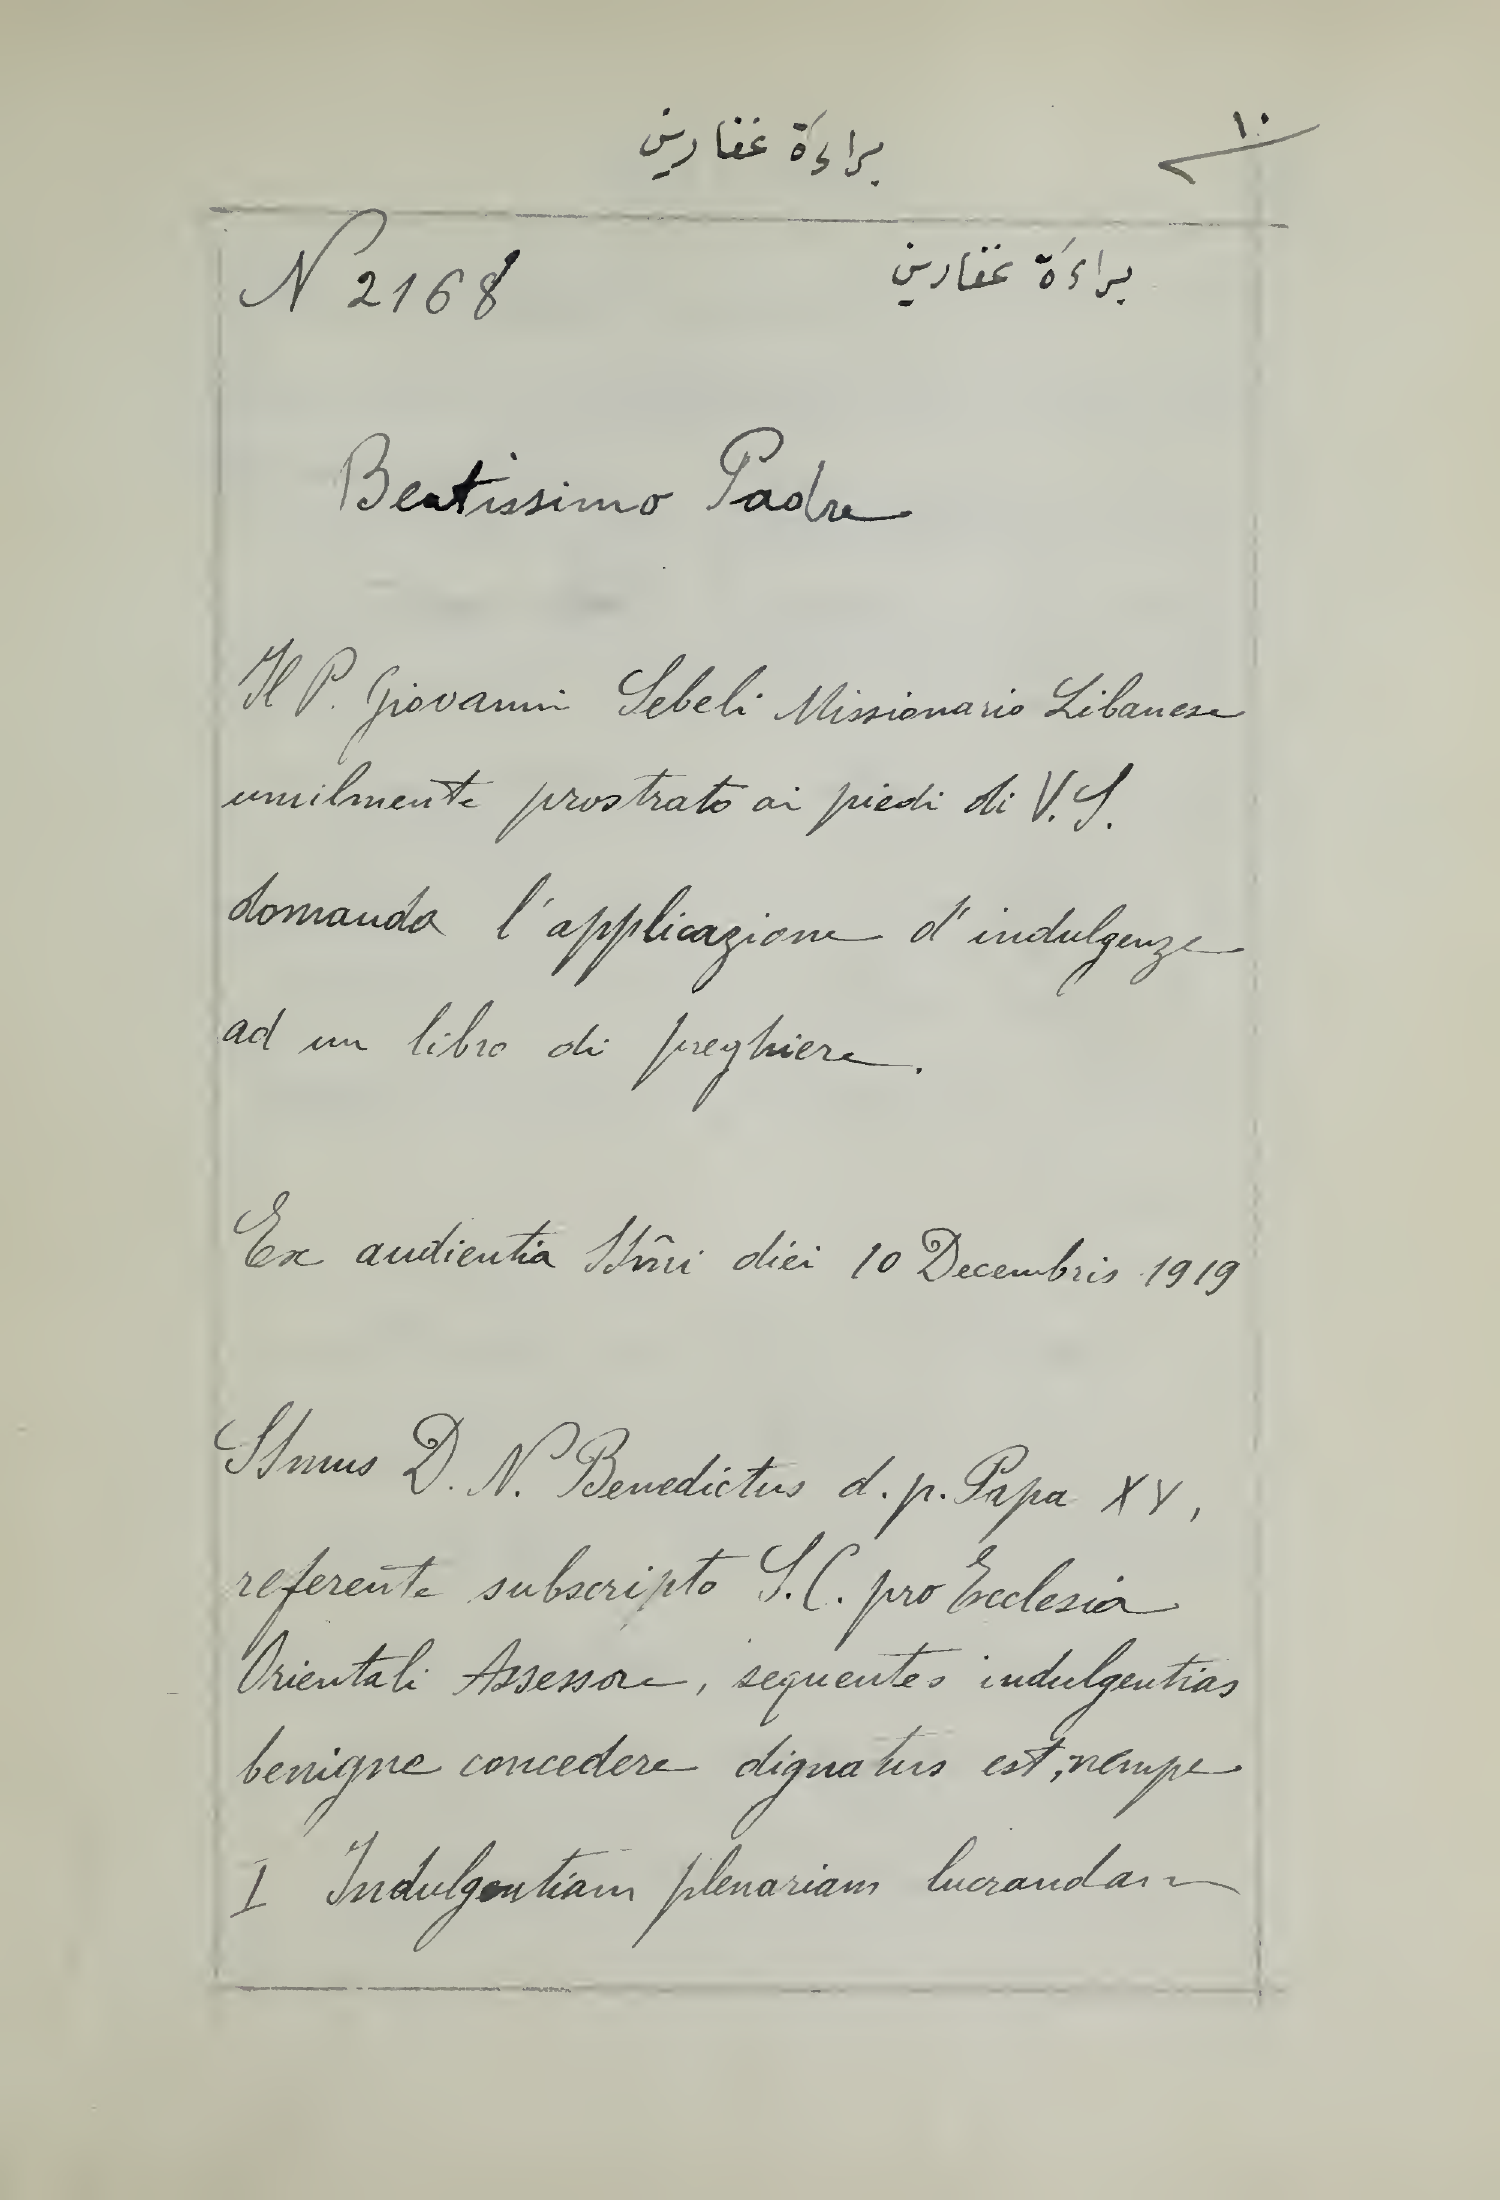 براءة غفارين
١٠
N 2168
براءة غفارين
Beatissimo Padre
Il P. Giovanni Sebeli Missionario Libanese
umilmente prostrato ai piedi di V. S.
domanda l'applicazione d'indulgenze
ad un libro di preghiere.
Ex audientia SSm̃i diei 10 Decembris 1919
SSmus D. N. Benedictus d. p. Papa XV,
referente subscripto S. C. pro Ecclesia
Orientali Assessore, sequentes indulgentias
benigne concedere dignatus est, nempe
I Indulgentiam plenariam lucrandam